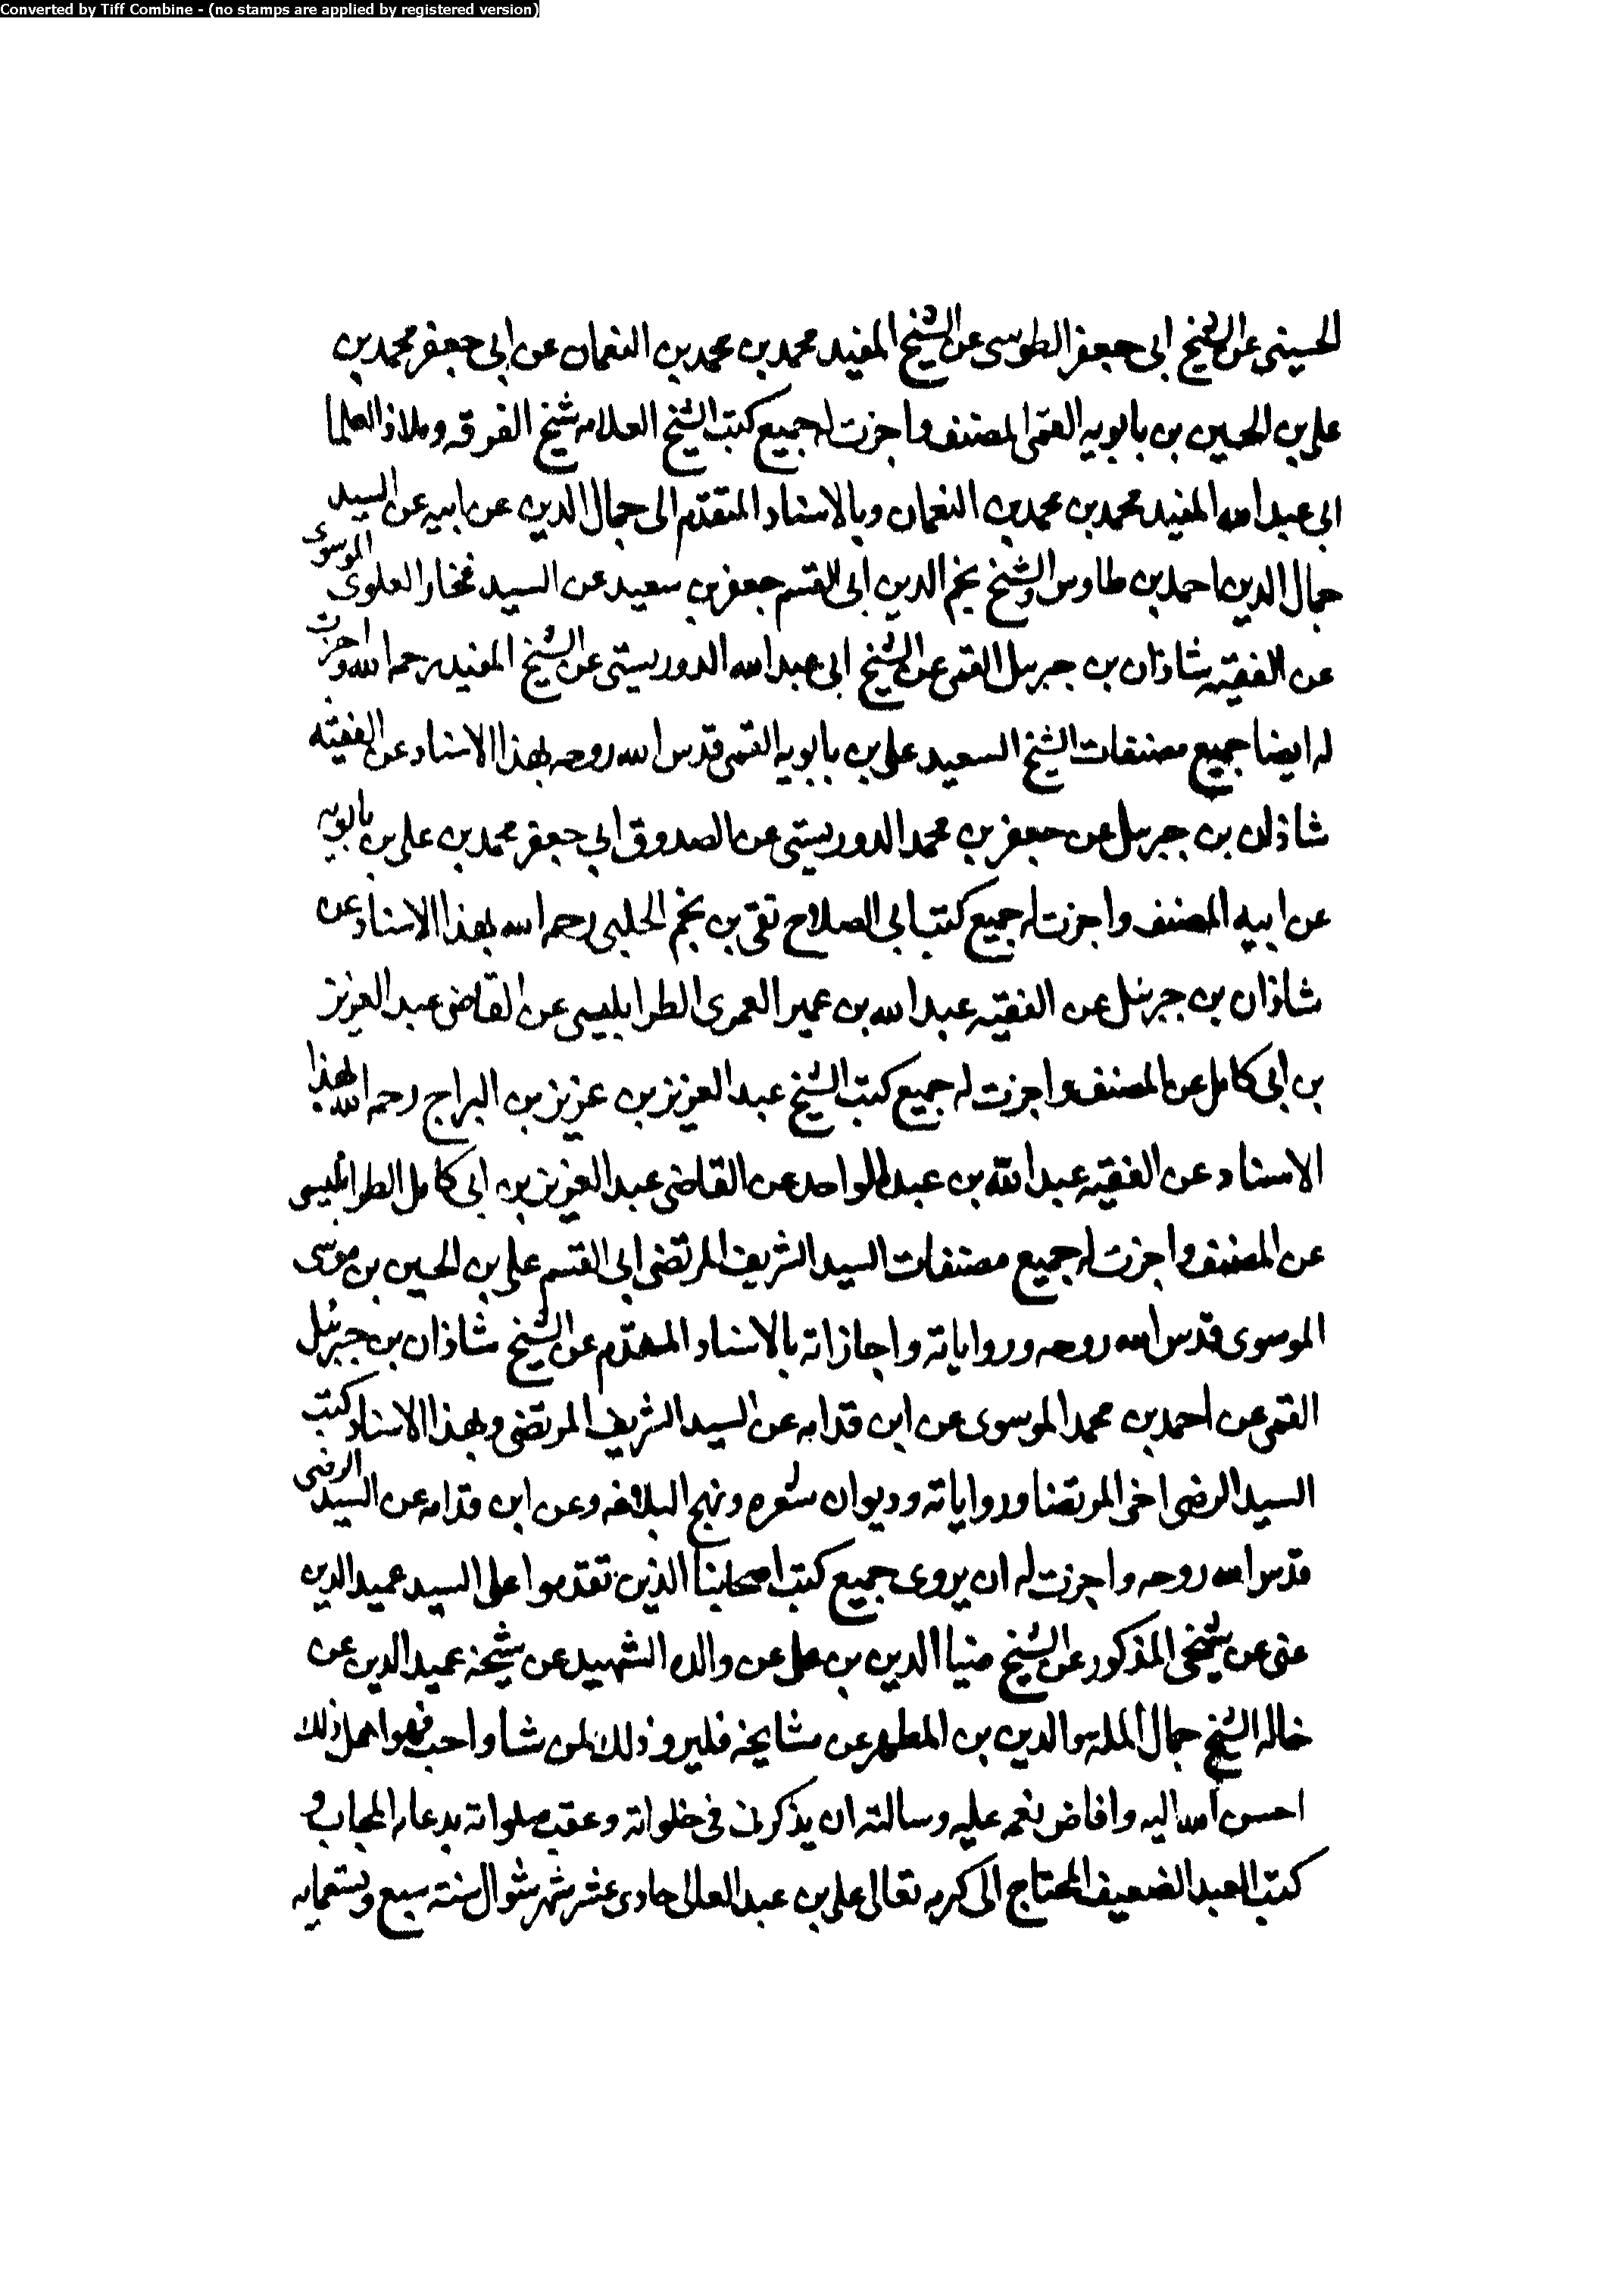 Converted by Tiff Combine - (no stamps are applied by registered version)
الحسيني عن الشيخ ابي جعفر الطوسي عن الشيخ المفيد محمد بن محمد بن النعمان عن ابي جعفر محمد بن
علي بن الحسين بن بابويه القمي المصنف واجزت له جميع كتب الشيخ العلامه شيخ الفرقه وملاذ العلما
ابي عبد الله المفيد محمد بن محمد بن النعمان وبالاسناد المتقدم الى جمال الدين عن ابيه عن السيد
جمال الدين احمد بن طاوس والشيخ نجم الدين ابي القسم جعفر بن سعيد عن السيد فخار العلوي الموسوي
عن الفقيه شاذان بن جبرئيل القمي عن الشيخ ابي عبد الله الدوريستي عن الشيخ المفيد رحمه الله واجزت
له ايضا جميع مصنفات الشيخ السعيد علي بن بابويه القمي قدس الله روحه بهذا الاسناد عن الفقيه
شاذان بن جبرئيل عن جعفر بن محمد الدوريستي عن الصدوق ابي جعفر محمد بن علي بن بابويه
عن ابيه المصنف واجزت له جميع كتب ابي الصلاح تقي بن نجم الحلبي رحمه الله بهذا الاسناد عن
شاذان بن جبرئيل عن الفقيه عبد الله بن عمير العمري الطرابلسي عن القاضي عبد العزيز
بن ابي كامل عن المصنف واجزت له جميع كتب الشيخ عبد العزيز بن عزيز بن البراج رحمه الله بهذا
الاسناد عن الفقيه عبد الله بن عبد الواحد عن القاضي عبد العزيز بن ابي كامل الطرابلسي
عن المصنف واجزت له جميع مصنفات السيد الشريف المرتضى ابي القسم علي بن الحسين بن موسى
الموسوي قدس الله روحه ورواياته واجازاته بالاسناد المتقدم عن الشيخ شاذان بن جبرئيل
القمي عن احمد بن محمد الموسوي عن ابن قدامه عن السيد الشريف المرتضى وبهذا الاسناد كتب
السيد الرضي اخي المرتضا ورواياته وديوان شعره ونهج البلاغه وعن ابن قدامه عن السيد الرضي
قدس الله روحه واجزت له ان يروي جميع كتب اصحابنا الذين تقدموا على السيد عميد الدين
عني عن شيخي المذكور عن الشيخ ضيا الدين بن علي عن والده الشهيد عن شيخه عميد الدين عن
خاله الشيخ جمال المله والدين بن المطهر عن مشايخه فليرو ذلك لمن شا واحب فهو اهل ذلك
احسن الله اليه وافاض نعمه عليه وسالته ان يذكرني في خلواته وعقب صلواته بدعائه المجاب و
كتب العبد الضعيف المحتاج الى كرمه تعالى علي بن عبد العالي حادي عشر شهر شوال سنة سبع وتسعمايه